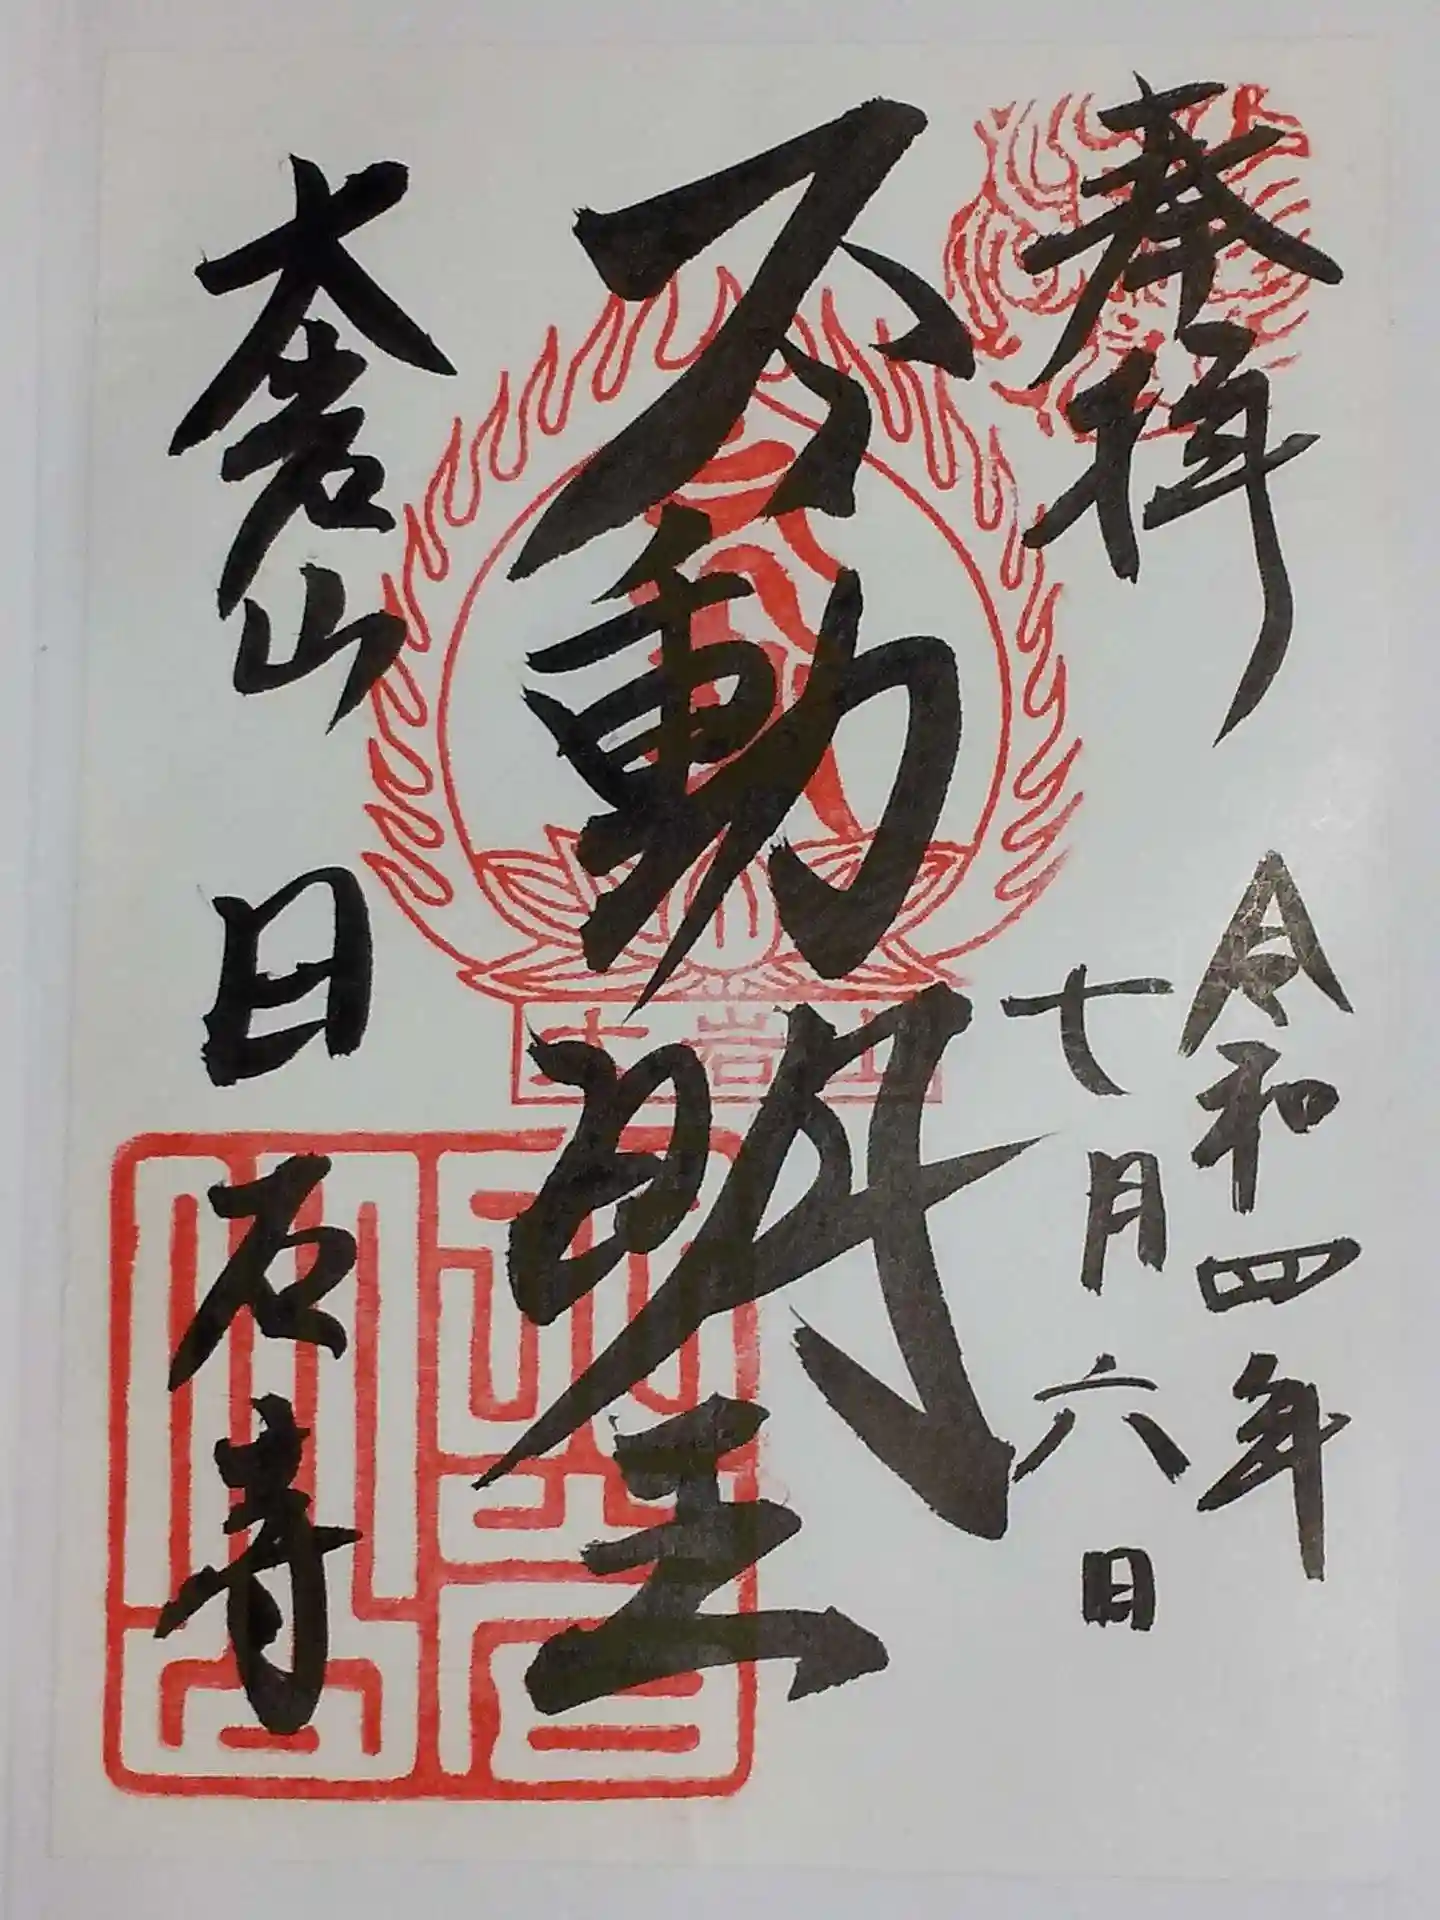 奉拝
令和四年
七月六日
不動明王
大岩山
大岩山 日石寺